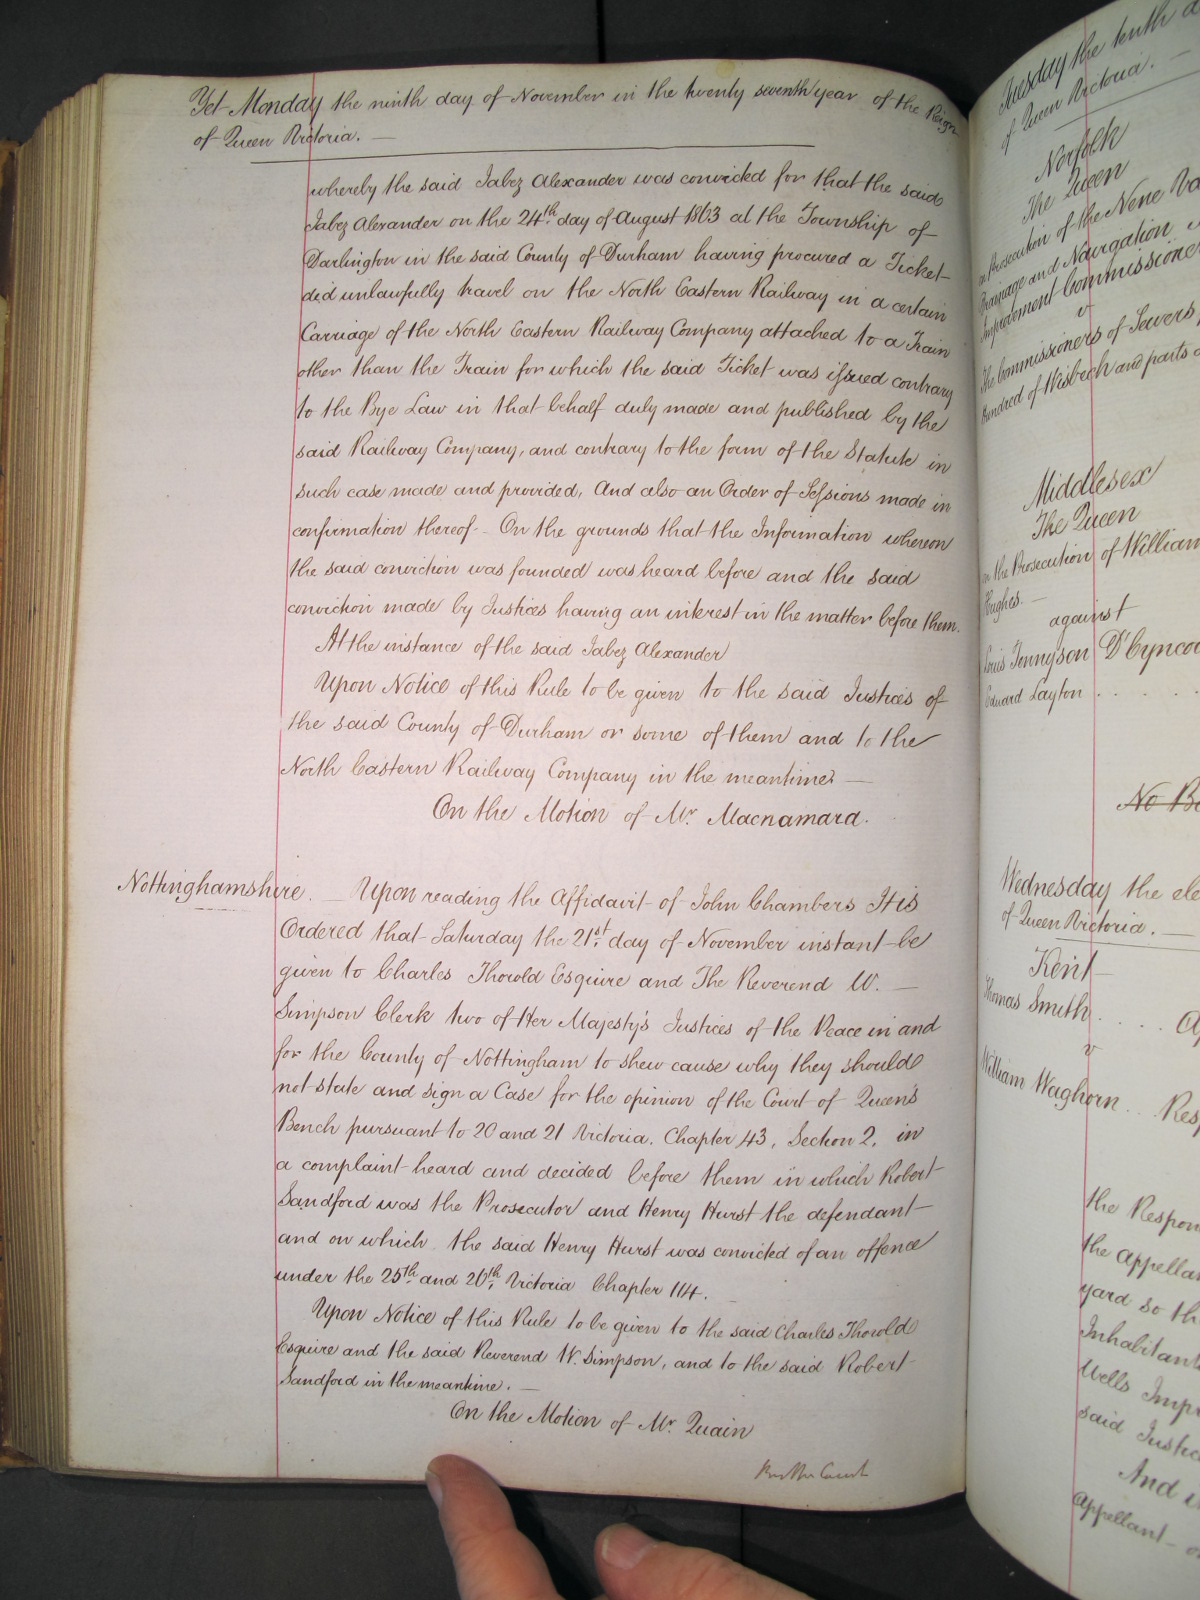 Yet Monday the ninth day of November in the twenty seventh year of the Reign
of Queen Victoria. —
whereby the said Jabez Alexander was convicted for that the said
Jabez Alexander on the 24th day of August 1863 at the Township of
Darlington in the said County of Durham having procured a Ticket
did unlawfully travel on the North Eastern Railway in a certain
Carriage of the North Eastern Railway Company attached to a Train
other than the Train for which the said Ticket was issued contrary
to the Bye Law in that behalf duly made and published by the
said Railway Company, and contrary to the form of the Statute in
such case made and provided, And also an Order of Sessions made in
confirmation thereof - On the grounds that the Information whereon
the said conviction was founded was heard before and the said
conviction made by Justices having an interest in the matter before them.
At the instance of the said Jabez Alexander
Upon Notice of this Rule to be given to the said Justices of
the said County of Durham or some of them and to the
North Eastern Railway Company in the meantime. —
On the Motion of Mr. Macnamara.
Nottinghamshire. — Upon reading the Affidavit of John Chambers It is
Ordered that Saturday the 21st day of November instant be
given to Charles Thorold Esquire and The Reverend W. —
Simpson Clerk two of Her Majesty's Justices of the Peace in and
for the County of Nottingham to shew cause why they should
not state and sign a Case for the opinion of the Court of Queen's
Bench pursuant to 20 and 21 Victoria. Chapter 43, Section 2, in
a complaint heard and decided before them in which Robert
Sandford was the Prosecutor and Henry Hurst the defendant
and on which the said Henry Hurst was convicted of an offence
under the 25th and 26th Victoria Chapter 114.
Upon Notice of this Rule to be given to the said Charles Thorold
Esquire and the said Reverend W. Simpson, and to the said Robert
Sandford in the meantime. —
On the Motion of Mr. Quain
By the Court
Tuesday the tenth
of Queen Victoria. —
Norfolk
The Queen
on Prosecution of the Nene
Drainage and Navigation
Improvement Commissioners
v
The Commissioners of Sewers,
Hundred of Wisbech and parts
Middlesex
The Queen
on the Prosecution of William
Hughes. —
against
Louis Tennyson D'Eyncou
Edward Layton . . . .
No
Wednesday the ele
of Queen Victoria. —
Kent
Thomas Smith . . . .
v
William Waghorn . . . Resp
the Respon
the appellan
yard so th
Inhabitant
Wells Impr
said Justic
And
Appellant